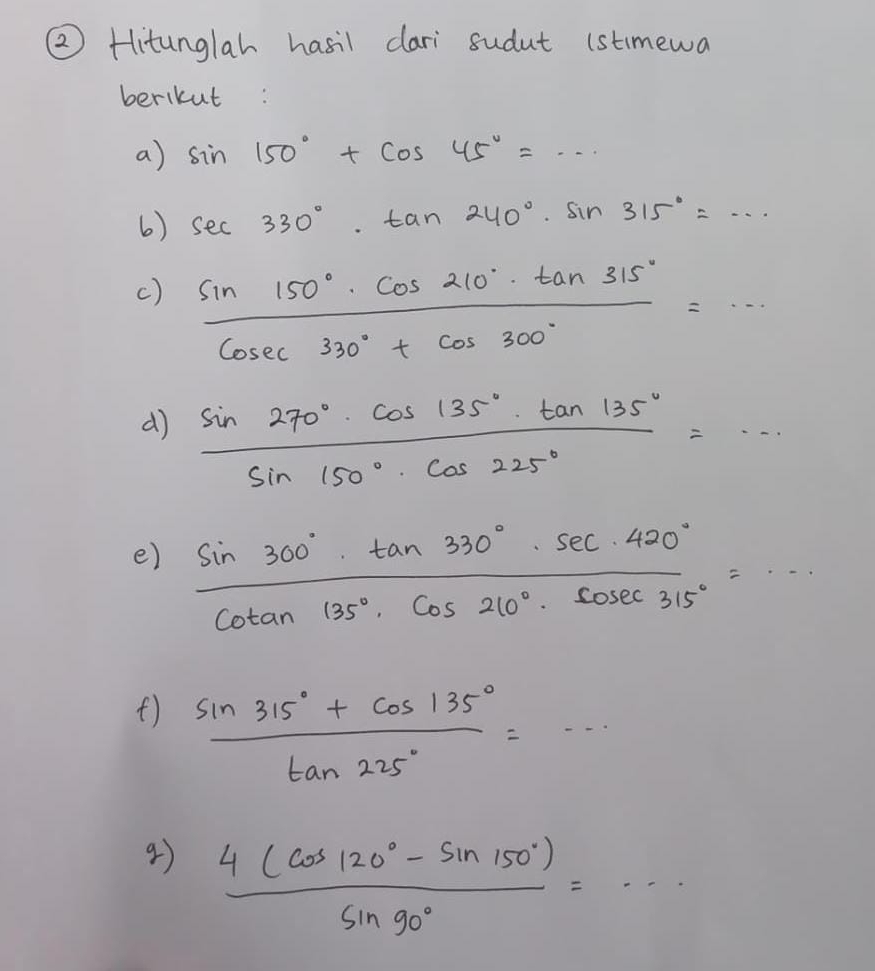 ② Hitunglah hasil dari sudut istimewa
berikut :
a) sin 150° + cos 45° = ...
b) sec 330° . tan 240° . sin 315° = ...
c) sin 150° . cos 210° . tan 315° = ...
Cosec 330° + cos 300°
d) sin 270° . cos 135° . tan 135° = ...
Sin 150° . Cos 225°
e) Sin 300° . tan 330° . sec . 420° = ...
Cotan 135° . Cos 210° . Cosec 315°
f) sin 315° + cos 135° = ...
tan 225°
g) 4 (cos 120° - sin 150°) = ...
Sin 90°